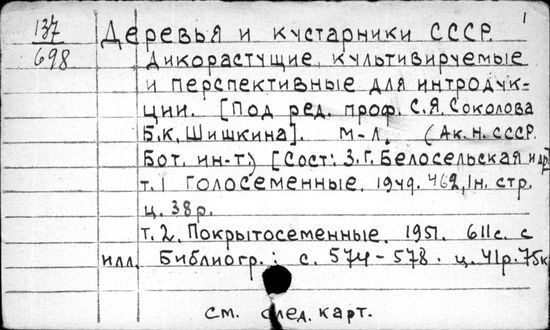 1
137 Деревья и кустарники СССР.
698 Дикорастущие, культивируемые
и перспективные для интродук-
ции. [Под ред. проф. С.Я. Соколова
Б.К. Шишкина]. М-Л, (Ак. н. СССР.
Бот. ин-т.) [Сост: З.Г. Белосельская и др]
т. 1 Голосеменные. 1949. 462, 1н. стр.
ц. 38р.
т. 2. Покрытосеменные. 1951. 611с. с
илл. Библиогр.: с. 574-578. ц. 41р. 75к
см. след. карт.